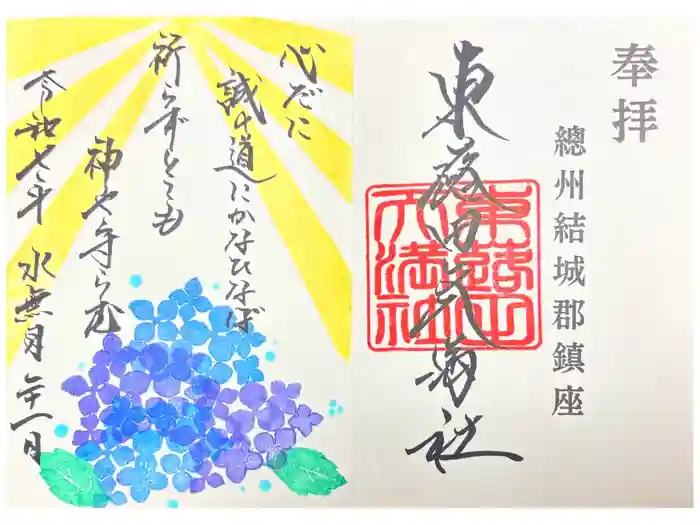 奉拝
總州結城郡鎮座
東蕗田天満社
東蕗田天満社
心だに
誠の道にかなひなば
祈らずとても
神や守らむ
令和七年 水無月 廿一日